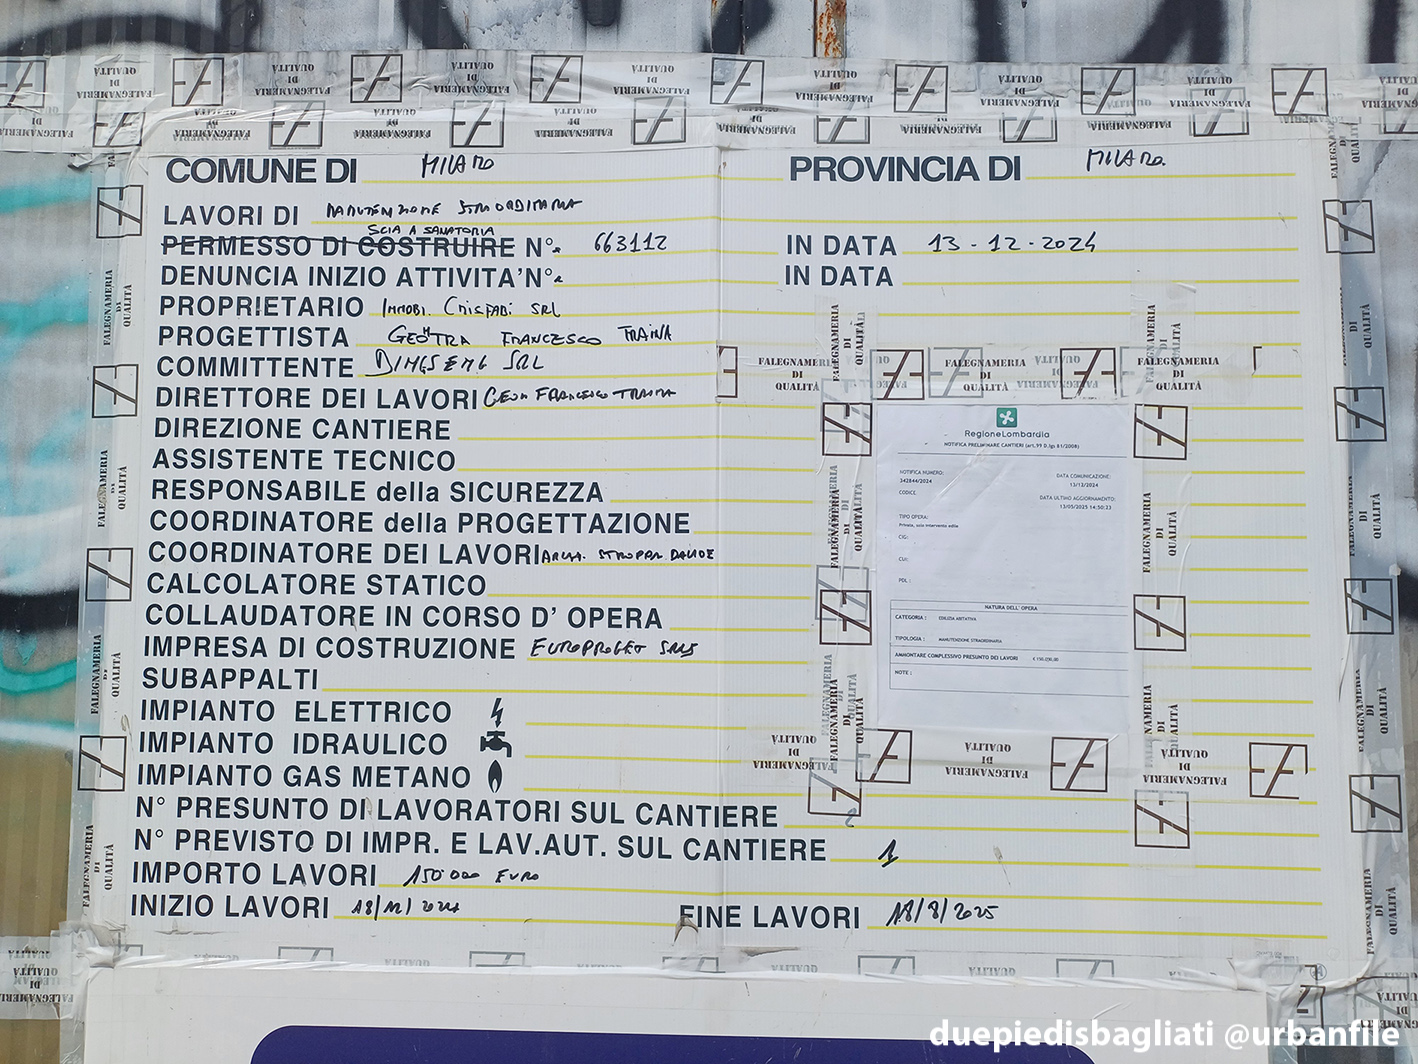 COMUNE DI MILANO PROVINCIA DI MILANO
LAVORI DI MANUTENZIONE STRAORDINARIA
SCIA A SANATORIA
PERMESSO DI COSTRUIRE N°. 663112 IN DATA 13-12-2024
DENUNCIA INIZIO ATTIVITA' N°. IN DATA
PROPRIETARIO IMMOBI. SRL
PROGETTISTA GEOM FRANCESCO TRAINA
COMMITTENTE SRL
DIRETTORE DEI LAVORI GEOM FRANCESCO TRAINA
DIREZIONE CANTIERE
ASSISTENTE TECNICO
RESPONSABILE della SICUREZZA
COORDINATORE della PROGETTAZIONE
COORDINATORE DEI LAVORI ARCH. DAVIDE
CALCOLATORE STATICO
COLLAUDATORE IN CORSO D' OPERA
IMPRESA DI COSTRUZIONE EUROPROGET
SUBAPPALTI
IMPIANTO ELETTRICO
IMPIANTO IDRAULICO
IMPIANTO GAS METANO
N° PRESUNTO DI LAVORATORI SUL CANTIERE
N° PREVISTO DI IMPR. E LAV.AUT. SUL CANTIERE 1
IMPORTO LAVORI 150.000 EURO
INIZIO LAVORI 18/12/2024 FINE LAVORI 18/8/2025
RegioneLombardia
NOTIFICA PRELIMINARE CANTIERI (art.99 D.lgs 81/2008)
NOTIFICA NUMERO: DATA COMUNICAZIONE:
342844/2024 13/12/2024
CODICE DATA ULTIMO AGGIORNAMENTO:
13/05/2025 14:50:23
TIPO OPERA:
Privata, solo intervento edile
CIG:
CUI:
PDL:
NATURA DELL' OPERA
CATEGORIA: EDILIZIA ABITATIVA
TIPOLOGIA: MANUTENZIONE STRAORDINARIA
AMMONTARE COMPLESSIVO PRESUNTO DEI LAVORI € 150.000,00
NOTE:
FALEGNAMERIA DI QUALITÀ
duepiedisbagliati @urbanfile